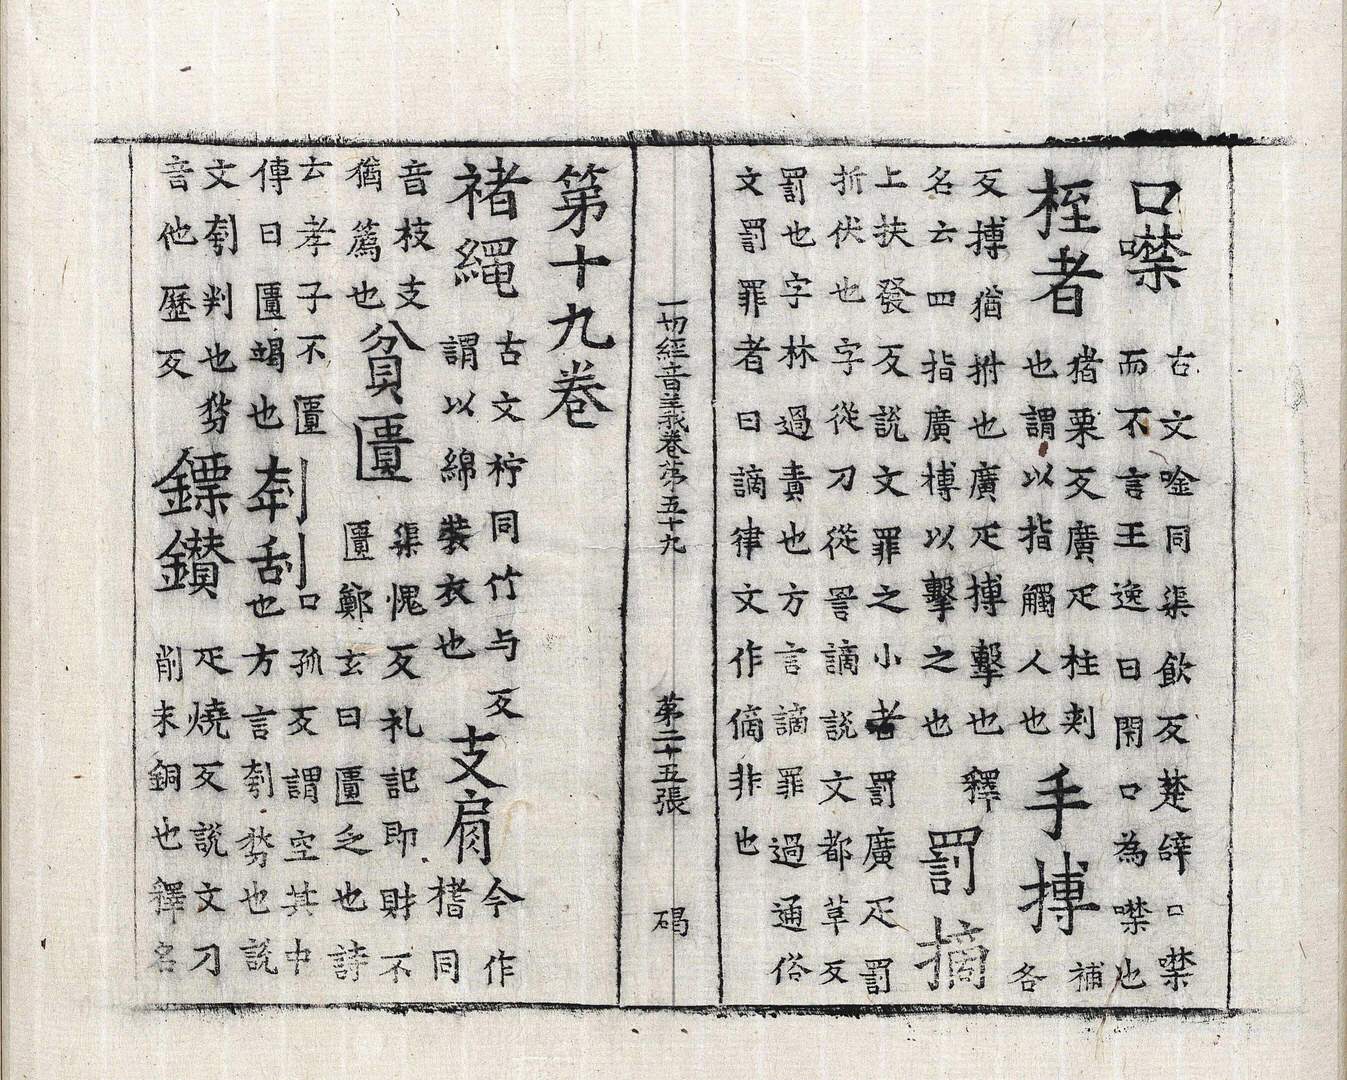 口噤
古文唫同渠飲反楚辞口噤
而不言王逸曰閉口為噤也
桎者
猪栗反廣疋柱刾
也謂以指觸人也
手搏
補
各
反搏猶拊也廣疋搏擊也釋
名云四指廣榑以擊之也
罰擿
上扶發反說文罪之小者罰廣疋罰
折伏也字從刀從詈謫說文都草反
罰也字林過責也方言謫罪過通俗
文罰罪者曰謫律文作僪非也
一切經音義卷第五十九 第二十五張 碣
第十九卷
褚繩
古文柠同竹与反
謂以綿裝衣也
支肩
今作
榰同
音枝支
猶篤也
貧匱
渠愧反礼記即財不
匱鄭玄曰匱乏也詩
云孝子不匱
傳曰匱竭也
刳刮
口孤反謂空其中
也方言刳剺也說
文刳判也剺
音他歷反
鏢鑽
疋燒反說文刀
削末銅也釋名